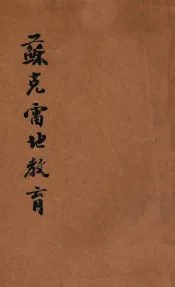 蘇克雷地教育